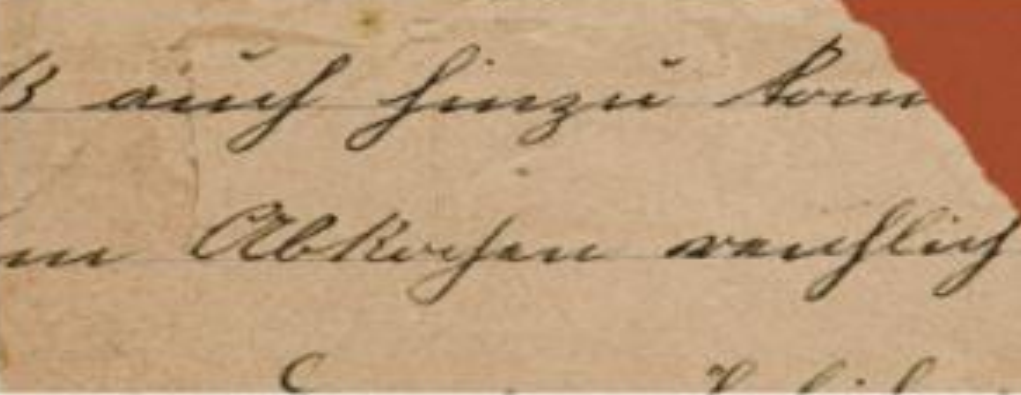 ß auch hinzu kom
m Abkochen reichlich